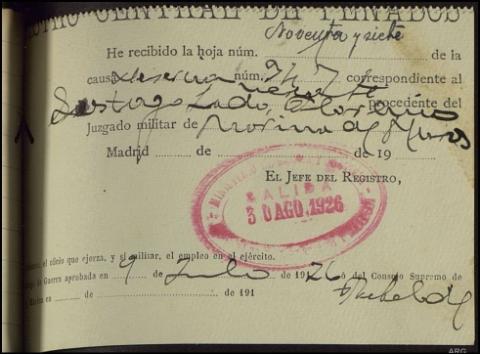 REGISTRO CENTRAL DE PENADOS
Noventa y siete
He recibido la hoja núm. de la
causa núm. 247 correspondiente al
Santiago Lado procedente del
Juzgado militar de Marina de Muros
Madrid de de 19
EL JEFE DEL REGISTRO,
SALIDA
30 AGO. 1926
el oficio que ejerza, y si militar, el empleo en el ejército.
de Guerra aprobada en 9 de Julio de 1926 ó del Consejo Supremo de
Marina en de de 191
Rebeldía
ARG